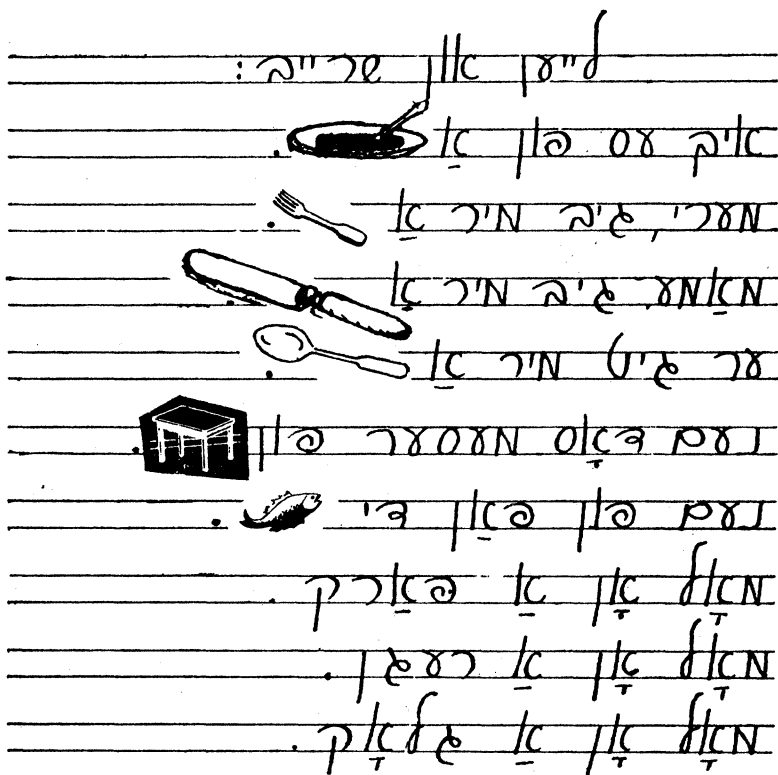 לייען און שרייב :
איך עס פון אַ .
מערי, גיב מיר אַ .
מאַמע, גיב מיר אַ .
ער גיט מיר אַ .
נעם דאָס מעסער פון .
נעם פון פאַן די .
מאָל אָן אַ פּאַרק .
מאָל אָן אַ רעגן .
מאָל אָן אַ גלאָק .